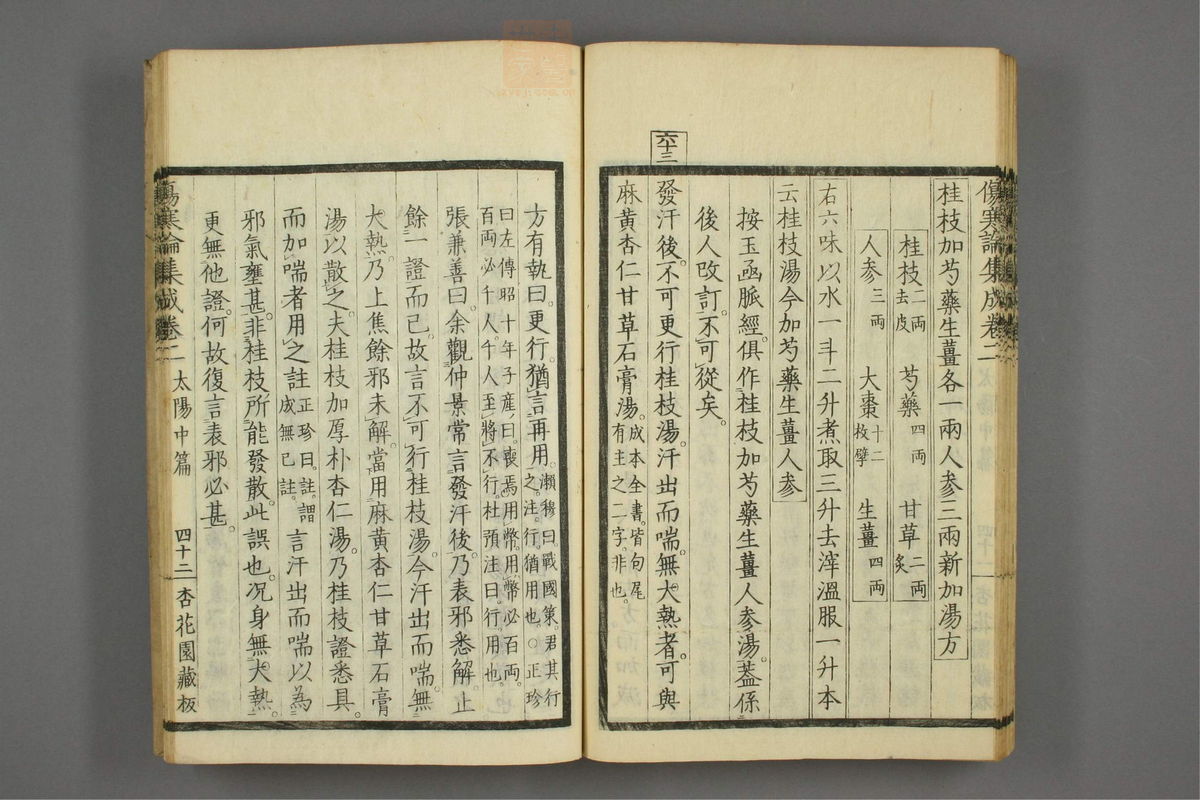 傷寒論集成卷二
桂枝加芍藥生薑各一兩人參三兩新加湯方
桂枝二兩去皮 芍藥四兩 甘草二兩炙
人參三兩 大棗十二枚擘 生薑四兩
右六味以水一斗二升煮取三升去滓溫服一升本
云桂枝湯今加芍藥生薑人參
按玉函脈經。俱作桂枝加芍藥生薑人參湯。蓋係
後人改訂。不可從矣。
六十三
發汗後。不可更行桂枝湯。汗出而喘。無大熱者。可與
麻黃杏仁甘草石膏湯。成本全書。皆句尾有主之二字。非也。
方有執曰。更行。猶言再用。瀨穆曰。戰國策。君其行之。注。行猶用也。○正珍
曰左傳昭十年子產曰。喪焉用幣。用幣必百兩。
百兩必千人。千人至。將不行。杜預注曰。行。用也。
張兼善曰。余觀仲景常言發汗後。乃表邪悉解。止
餘一證而已。故言不可行桂枝湯。今汗出而喘。無
大熱。乃上焦餘邪未解。當用麻黃杏仁甘草石膏
湯以散之。夫桂枝加厚朴杏仁湯。乃桂枝證悉具。
而加喘者用之註正珍曰。註。謂成無已註。言汗出而喘以為
邪氣壅甚。非桂枝所能發散。此誤也。況身無大熱。
更無他證。何故復言表邪必甚。
傷寒論集成卷二 太陽中篇 四十二 杏花園藏板